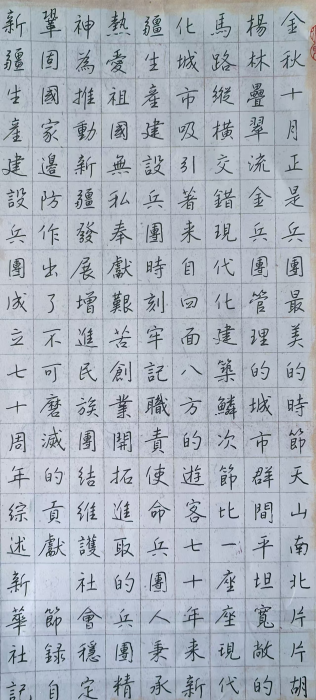 金秋十月正是兵團最美的時節天山南北片片胡
楊林疊翠流金兵團管理的城市群間平坦寬敞的
馬路縱橫交錯現代化建築鱗次節比一座座現代
化城市吸引著來自四面八方的遊客七十年來新
疆生產建設兵團時刻牢記職責使命兵團人秉承
熱愛祖國無私奉獻艱苦創業開拓進取的兵團精
神為推動新疆發展增進民族團結維護社會穩定
鞏固國家邊防作出了不可磨滅的貢獻 節錄自
新疆生產建設兵團成立七十周年綜述新華社記